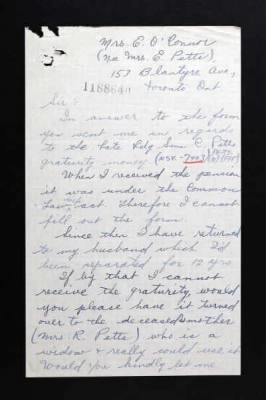 Mrs. E. O'Connor
(nee Mrs. E. Petts),
157 Blantyre Ave,
Toronto Ont
1188640
Sir:
In answer to the form
you sent me in regards
to the late Pdg Smn C. Petts
gratuity money (NSK-7003)
When I received the pension
it was under the Common
Law act therefore I cannot
fill out the form.
Since then I have returned
to my husband which I'd
been separated for 12 yrs
If by that I cannot
receive the graturity, would
you please have it turned
over to the deceased mother
(Mrs. R. Petts) who is a
widow & really could use it
Would you kindly let me